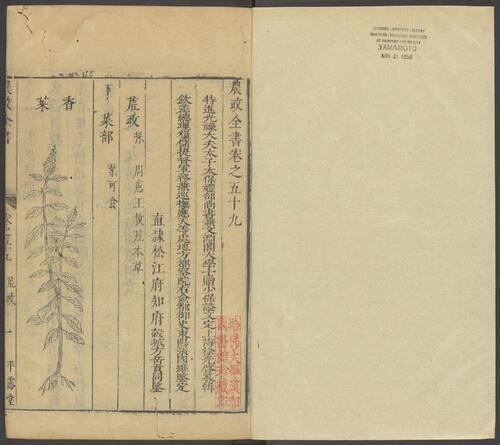 CHINESE-JAPANESE LIBRARY
HARVARD-YENCHING INSTITUTE
AT HARVARD UNIVERSITY
YAMAMOTO
NOV 21 1956
農政全書卷之五十九
特進光祿大夫太子太保禮部尚書兼文淵閣大學士贈少保謚文定上海徐光啓纂輯
欽差總理糧儲提督軍務兼巡撫應天等處地方都察院右僉都御史東陽張國維鑒定
直隸松江府知府穀城方岳貢同鑒
哈佛大學漢和
圖書館珍藏印
荒政 採周憲王救荒本草
菜部 葉可食
香菜
農政全書 卷之五十九 荒政 一 平露堂